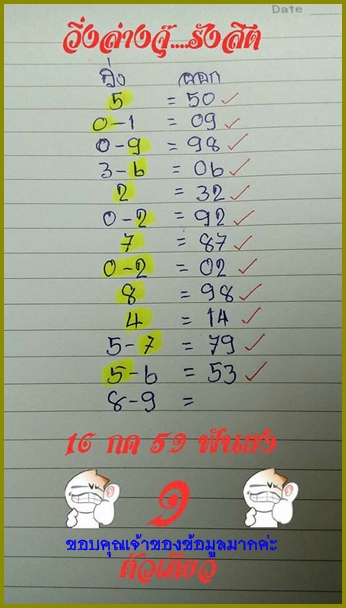 Date
วิ่งล่างจุ๊....รังสิต
วิ่ง ออก
5 = 50 ✓
0-1 = 09 ✓
0-9 = 98 ✓
3-6 = 06 ✓
2 = 32 ✓
0-2 = 92 ✓
7 = 87 ✓
0-2 = 02 ✓
8 = 98 ✓
4 = 14 ✓
5-7 = 79 ✓
5-6 = 53 ✓
8-9 =
16 กค 59 ฟันธง
9
ขอบคุณเจ้าของข้อมูลมากค่ะ
ตัวเดียว